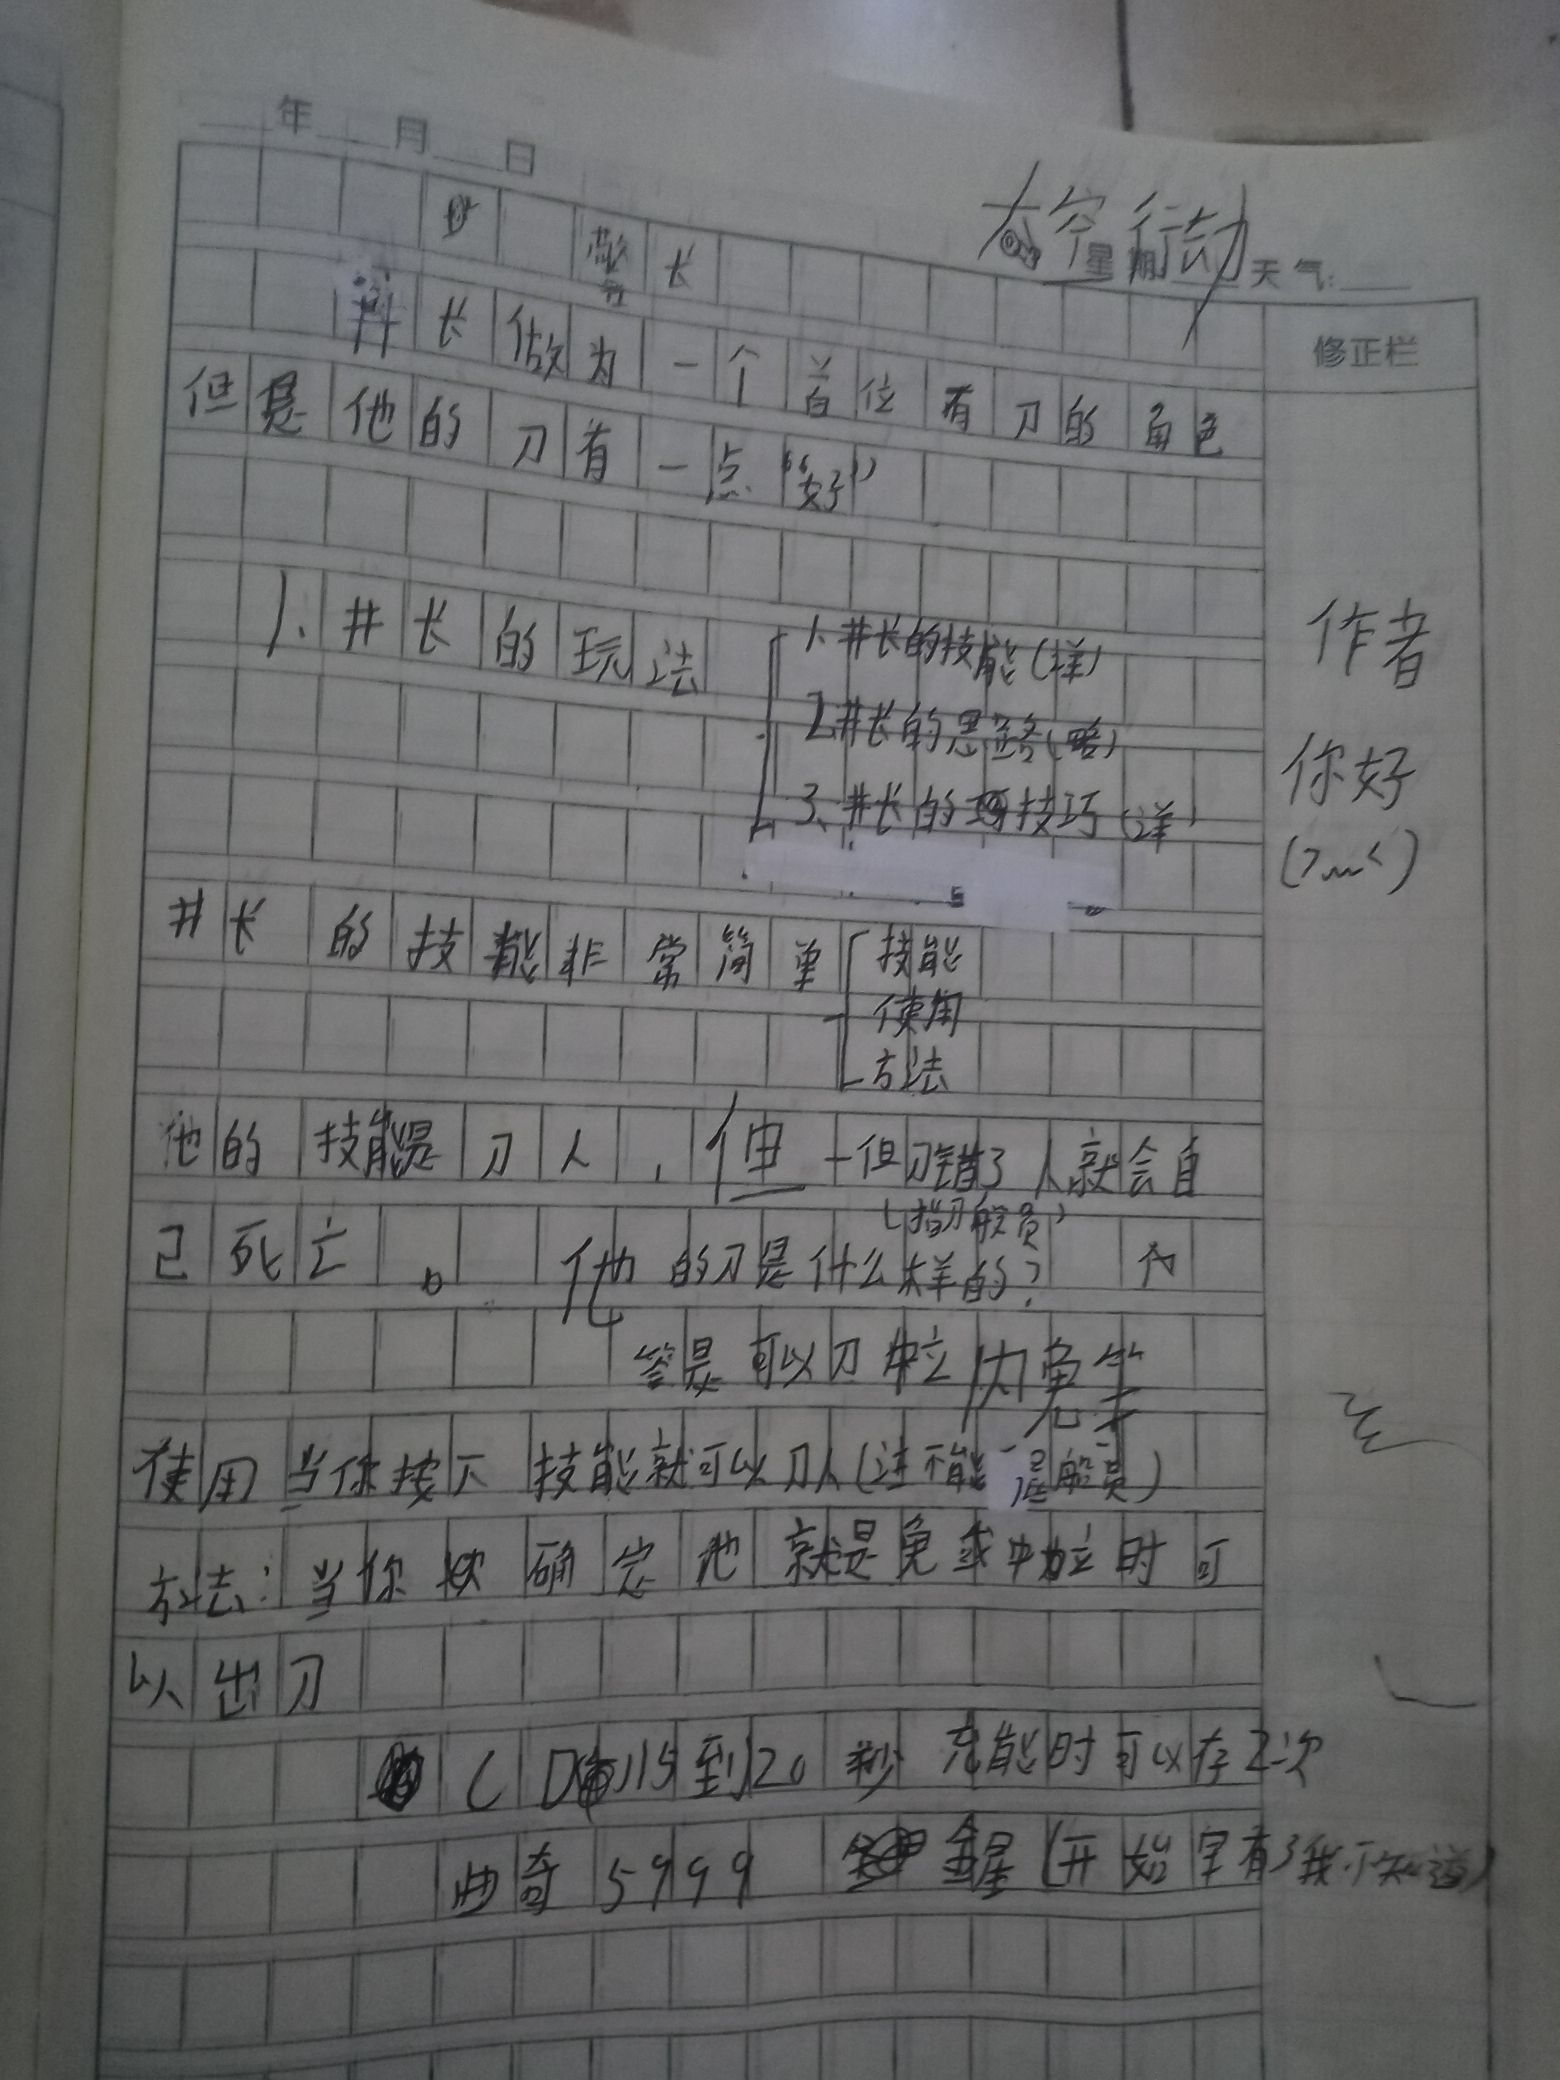 年 月 日
太空行动
星期 天气:
警长
修正栏
井长做为一个首位有刀的角色
但是他的刀有一点“好”
1、井长的玩法
1、井长的技能(详)
2、井长的思路(略)
3、井长的技巧(详)
作者
你好
井长的技能非常简单
技能
使用
方法
他的技能是刀人,但一但刀错了人就会自
(指刀船员)
己死亡。 他的刀是什么样的?
答是可以刀中立内鬼等
使用当你按下技能就可以刀人(注不能 船员)
方法:当你 确定他就是鬼或中立时可
以出刀
CD 15到20秒 充能时可以存2次
曲奇5999 金星(开始字有了我不知道)